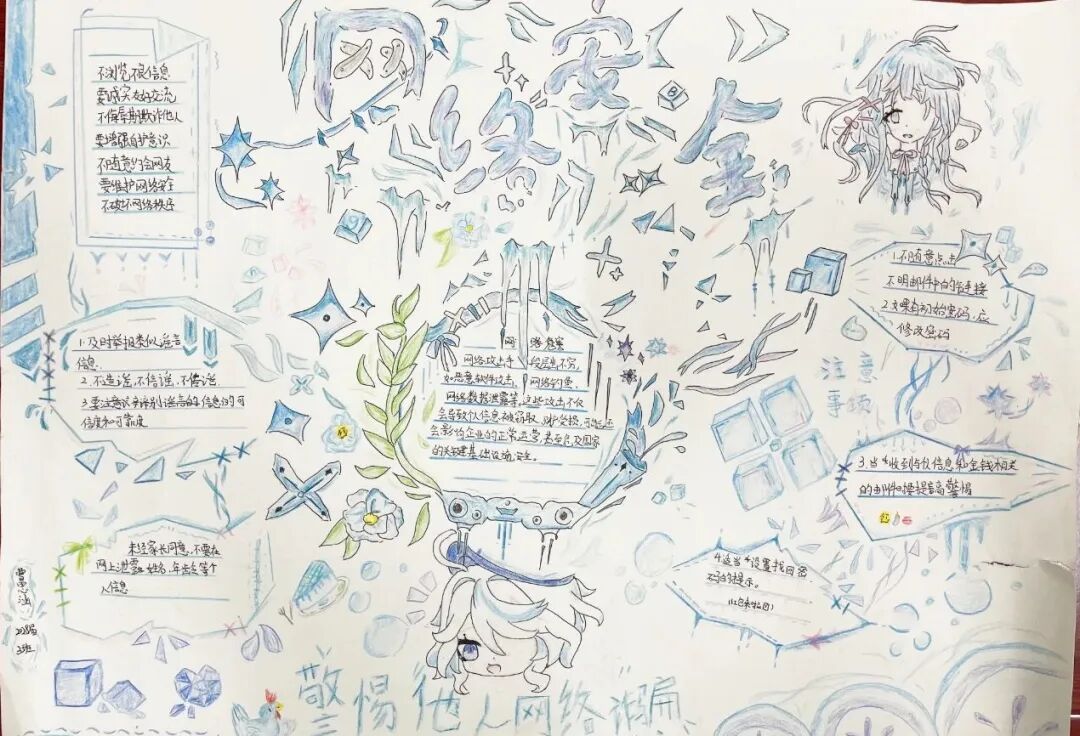 网络安全
不浏览不良信息
要诚实友好交流
不侮辱欺诈他人
要增强自护意识
不随意约会网友
要维护网络安全
不破坏网络秩序
1.及时举报类似谣言
信息
2.不造谣,不信谣,不传谣.
3.要注意识别谣言的信息的可
信度和可靠度
未经家长同意,不要在
网上泄露姓名,年龄等个
人信息
网络
网络攻击手段层出不穷,
如恶意软件攻击,网络钓鱼、
网络数据泄露等,这些攻击不仅
会导致个人信息被窃取,财产受损,可能还
会影响企业的正常运营,甚至危及国家
的关键基础设施安全。
1.不随意点击
不明邮件中的链接
2.如果有初始密码,应
修改密码
注意
事项
3.当收到与个人信息和金钱相关
的邮件要提高警惕
4.适当设置找回密
码的提示。
2班
警惕他人网络诈骗